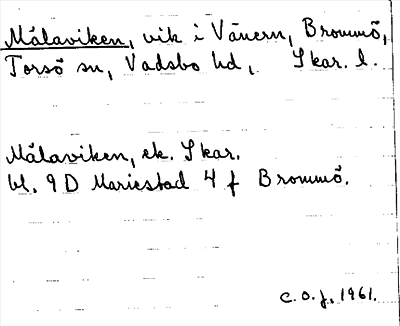 Målaviken, vik i Vänern, Brommö,
Torsö sn, Vadsbo hd, Skar. l.
Målaviken, ek. Skar.
bl. 9 D Mariestad 4 f Brommö.
C. O. J. 1961.